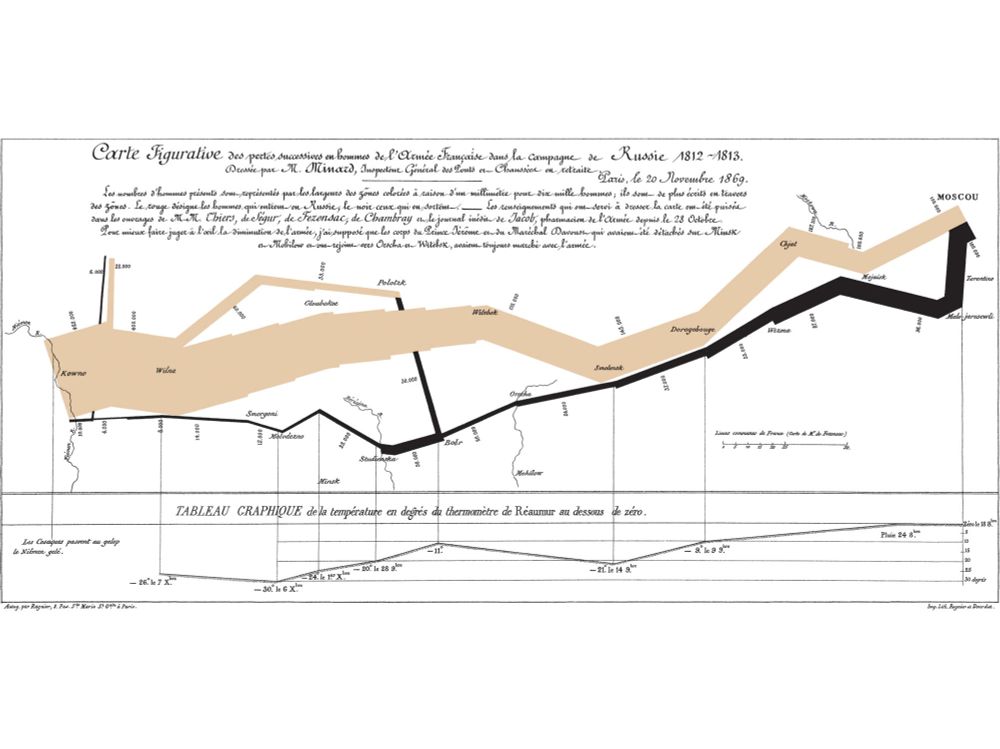 Carte Figurative des pertes successives en hommes de l'Armée Française dans la campagne de Russie 1812-1813.
Dressée par M. Minard, Inspecteur Général des Ponts et Chaussées en retraite.
Paris, le 20 Novembre 1869.
Les nombres d'hommes présents sont représentés par les largeurs des zones colorées à raison d'un millimètre pour dix mille hommes; ils sont de plus écrits en travers
des zones. Le rouge désigne les hommes qui entrent en Russie, le noir ceux qui en sortent. — Les renseignements qui ont servi à dresser la carte ont été puisés
dans les ouvrages de M.M. Thiers, de Ségur, de Fezensac, de Chambray et le journal inédit de Jacob, pharmacien de l'Armée depuis le 28 Octobre.
Pour mieux faire juger à l'œil la diminution de l'armée, j'ai supposé que les corps du Prince Jérôme et du Maréchal Davoust qui avaient été détachés sur Minsk
et Mohilow et ont rejoint vers Orscha et Witebsk, avaient toujours marché avec l'armée.
MOSCOU
100.000
100.000
Chjat
Mojaisk
Tarantino
Malo-jarosewli
6.000
22.000
33.000
Polotzk
Gloubokoe
60.000
Witebsk
Dorogobouge
Wizma
Kowno
Wilna
Smolensk
Orscha
Smorgoni
Molodezno
Studienska
Bobr
Minsk
Mohilow
Lieues communes de France (Carte de M. de Fezensac)
TABLEAU GRAPHIQUE de la température en degrés du thermomètre de Réaumur au dessous de zéro.
Les Cosaques passent au galop
le Niémen gelé.
Zéro le 18 8.bre
Pluie 24 8.bre
5
10
15
20
25
30 degrés
— 9.° le 9 9.bre
— 21.° le 14 9.bre
— 11.°
— 20.° le 28 9.bre
— 24.° le 1.er X.bre
— 30.° le 6 X.bre
— 26.° le 7 X.bre
Autog. par Regnier, 8. Pas. Ste. Marie St. Gain à Paris.
Imp. Lith. Regnier et Dourdet.